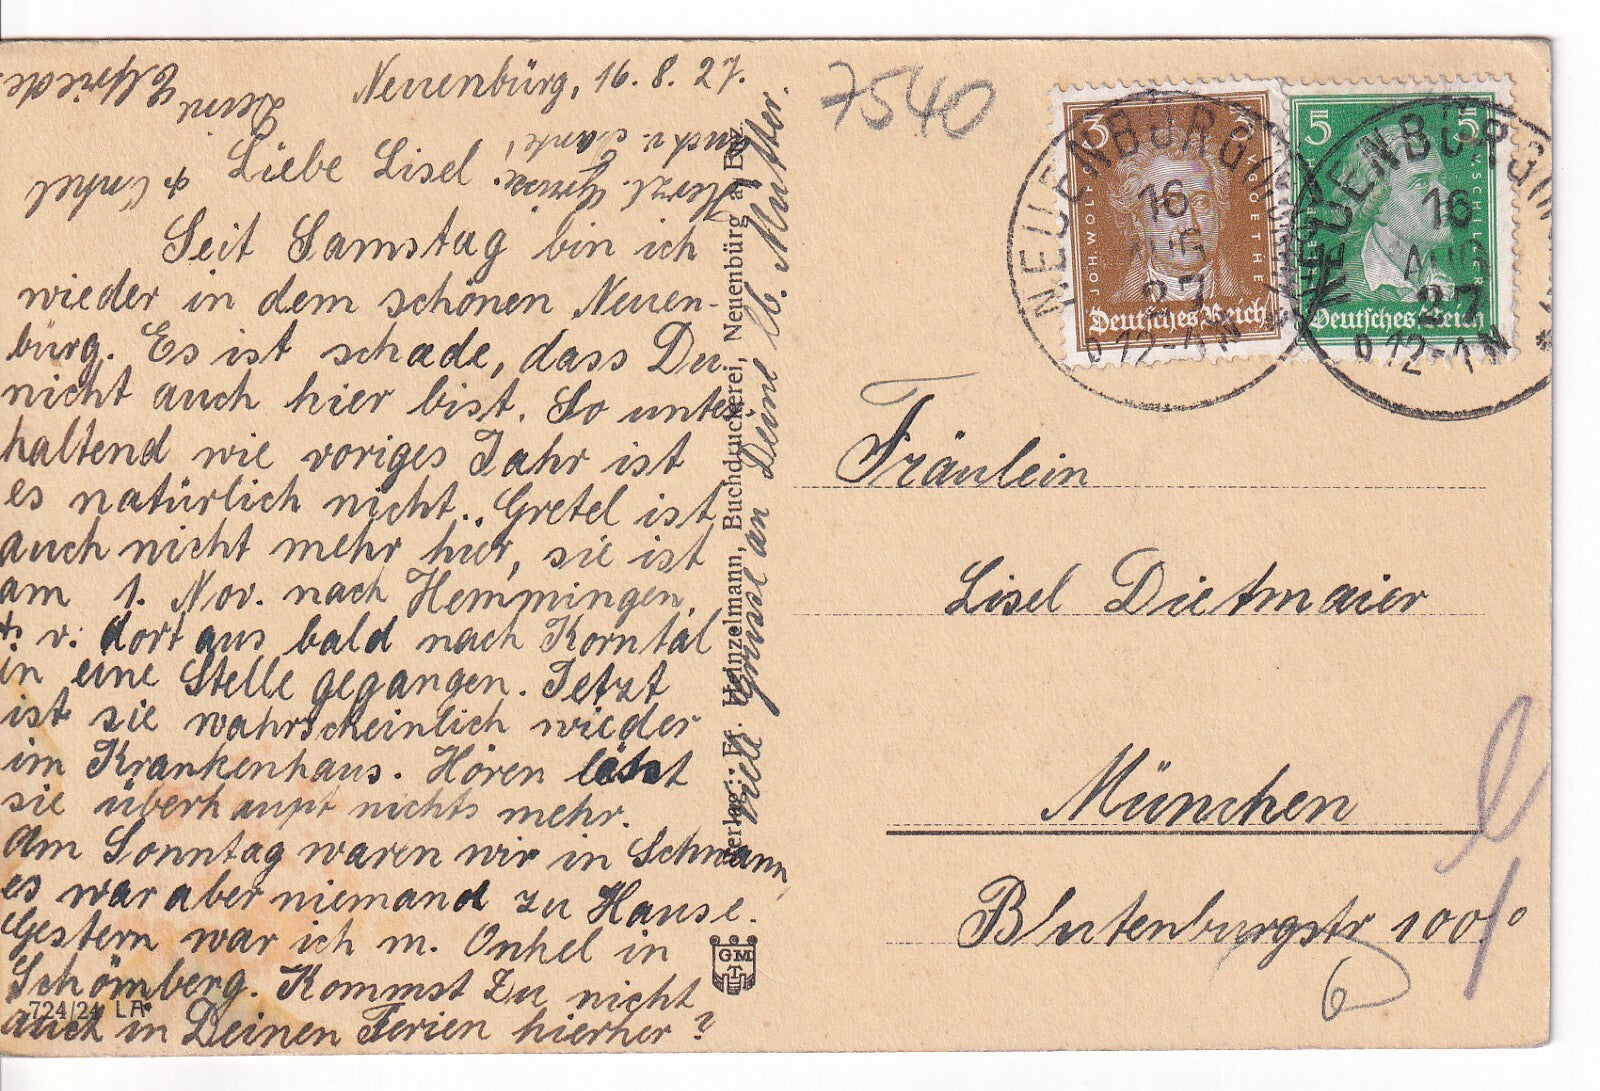 Neuenbürg, 16. 8. 27.
Liebe Lisel!
Seit Samstag bin ich
wieder in dem schönen Neuen-
bürg. Es ist schade, dass Du
nicht auch hier bist. So unter-
haltend wie voriges Jahr ist
es natürlich nicht. Gretel ist
auch nicht mehr hier, sie ist
am 1. Nov. nach Hemmingen,
+ v. dort aus bald nach Korntal
in eine Stelle gegangen. Jetzt
ist sie wahrscheinlich wieder
im Krankenhaus. Hören lässt
sie überhaupt nichts mehr.
Am Sonntag waren wir in Schwann,
es war aber niemand zu Hause.
Gestern war ich m. Onkel in
Schömberg. Kommst Du nicht
auch in Deinen Ferien hierher?
Viele Grüsse an Deine lb. Mutter.
Herzl. Grüsse!
Auch v. Tante
+ Onkel
Deine
Elfriede
Verlag: Fr. Heinzelmann, Buchdruckerei, Neuenbürg a. Enz.
GM
T
724/24 LA*
7540
3 3
JOH. WOLFG. V. GOETHE
Deutsches Reich
5 5
V. SCHILLER
Deutsches Reich
NEUENBÜRG
16
AUG
27
D 12-1 N
NEUENBÜRG
16
AUG
27
D 12-1 N
*
Fräulein
Lisel Dietmaier
München
Blutenburgstr 100/0
6